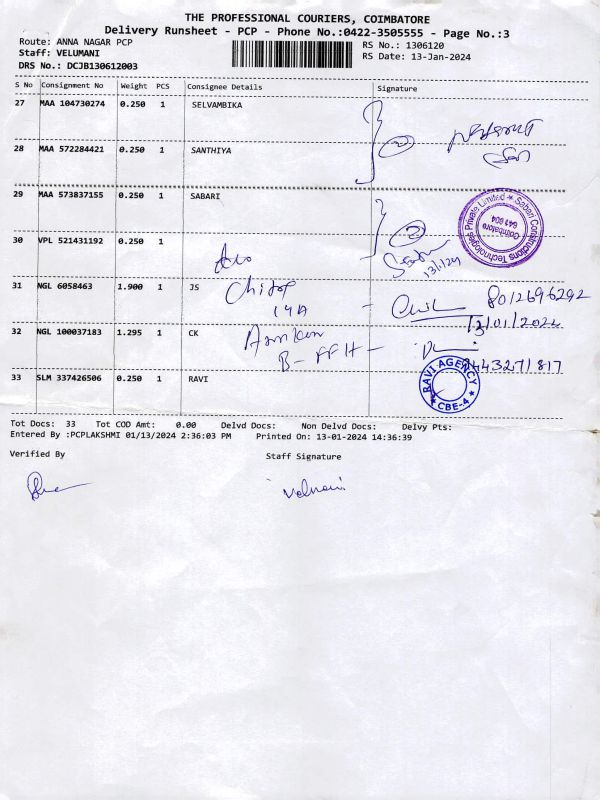 THE PROFESSIONAL COURIERS, COIMBATORE
Delivery Runsheet - PCP - Phone No.:0422-3505555 - Page No.:3
Route: ANNA NAGAR PCP
Staff: VELUMANI
DRS No.: DCJB130612003
RS No.: 1306120
RS Date: 13-Jan-2024
S No Consignment No Weight PCS Consignee Details Signature
27 MAA 104730274 0.250 1 SELVAMBIKA
28 MAA 572284421 0.250 1 SANTHIYA
2
29 MAA 573837155 0.250 1 SABARI
Sabari Constructions Technologies Private Limited ★
Coimbatore
641 004
30 VPL 521431192 0.250 1
2
13/1/24
31 NGL 6058463 1.900 1 JS
8012696292
13/01/2024
32 NGL 100037183 1.295 1 CK
B - FF H -
9443271817
33 SLM 337426506 0.250 1 RAVI
RAVI AGENCY
★ CBE-4 ★
Tot Docs: 33 Tot COD Amt: 0.00 Delvd Docs: Non Delvd Docs: Delvy Pts:
Entered By :PCPLAKSHMI 01/13/2024 2:36:03 PM Printed On: 13-01-2024 14:36:39
Verified By Staff Signature